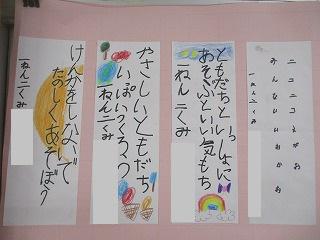 ニコニコえがお
みんないいかお
一ねん二くみ
ともだちといっしょに
あそぶといい気もち
一ねん二くみ
やさしいともだち
いっぱいつくろう
一ねん二くみ
けんかをしないで
たのしくあそぼう
一ねん二くみ